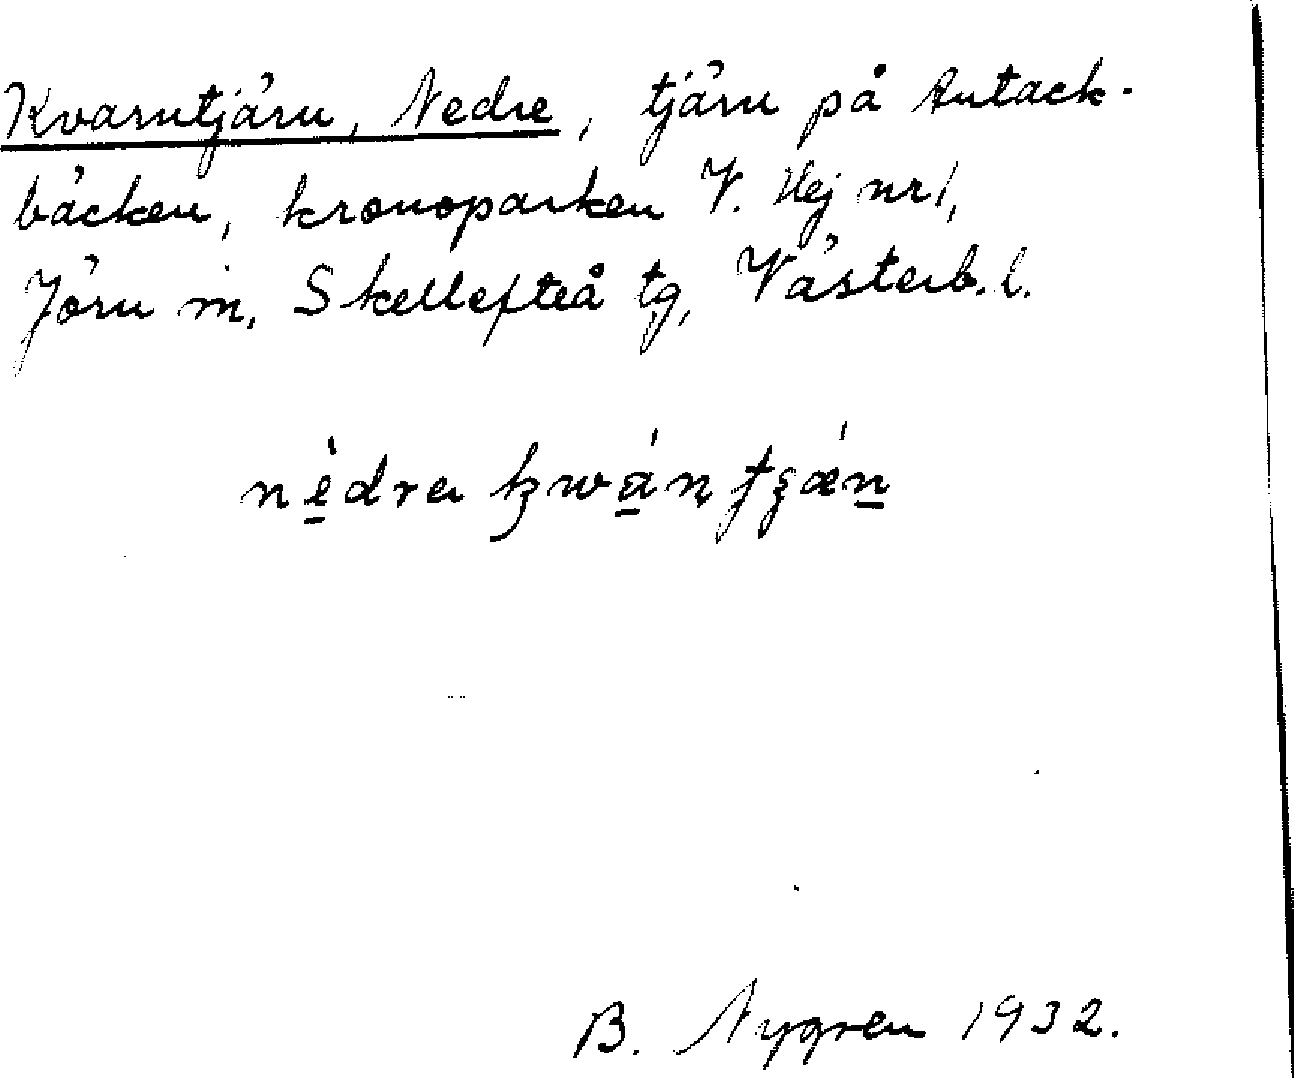 Kvarntjärn, Nedre, tjärn på Antack-
bäcken, kronoparken V. Hej nr 1,
Jörn sn, Skellefteå tg, Västerb. l.
B. Nygren 1932.